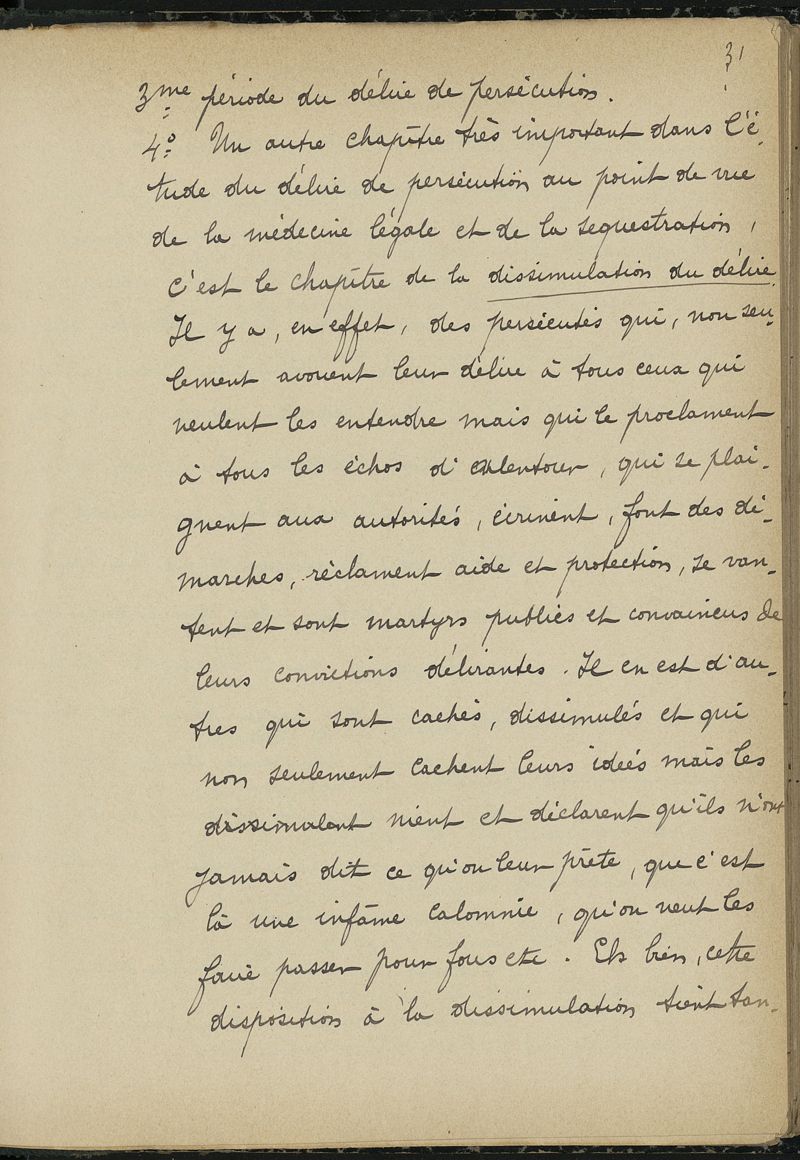 31
3me période du délire de persécution.
4o Un autre chapître très important dans l'é-
tude du délire de persécution au point de vue
de la médecine légale et de la sequestration,
c'est le chapître de la dissimulation du délire.
Il y a, en effet, des persécutés qui, non seu-
lement avouent leur délire à tous ceux qui
veulent les entendre mais qui le proclament
à tous les échos d'alentour, qui se plai-
gnent aux autorités, écrivent, font des dé-
marches, réclament aide et protection, se van-
tent et sont martyrs publics et convaincus de
leurs convictions délirantes. Il en est d'au-
tres qui sont cachés, dissimulés et qui
non seulement cachent leurs idées mais les
dissimulent nient et déclarent qu'ils n'ont
jamais dit ce qu'on leur prête, que c'est
là une infâme calomnie, qu'on veut les
faire passer pour fous etc. Eh bien, cette
disposition à la dissimulation tient tan-